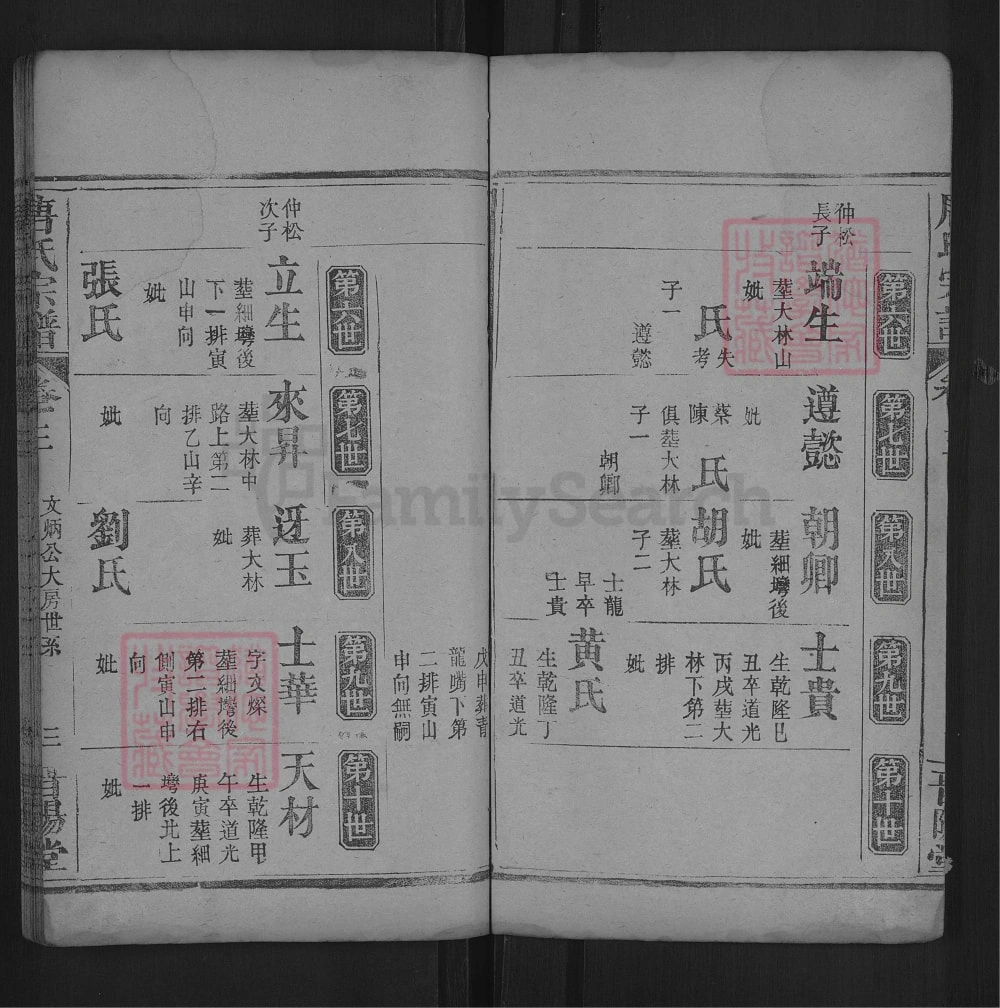 第六世
第七世
第八世
第九世
第十世
仲松
長子
端生
塟大林山
妣
氏
失
考
子一
遵懿
遵懿
妣
蔡
陳
氏
俱塟大林
子一
朝卿
朝卿
塟細塆後
妣
胡氏
塟大林
子二
士龍
早卒
士貴
士貴
生乾隆巳
丑卒道光
丙戌塟大
林下第二
排
妣
黄氏
生乾隆丁
丑卒道光
戊申葬青
龍嘴下第
二排寅山
申向無嗣
第六世
第七世
第八世
第九世
第十世
仲松
次子
立生
塟細塆後
下一排寅
山申向
妣
張氏
來昇
塟大林中
路上第二
排乙山辛
向
妣
迓玉
葬大林
妣
劉氏
士華
字文燦
塟細塆後
第二排右
側寅山申
向
妣
天材
生乾隆甲
午卒道光
庚寅塟細
塆後北上
一排
妣
氏宗譜
卷之三
文炳公大房世系
三
FamilySearch